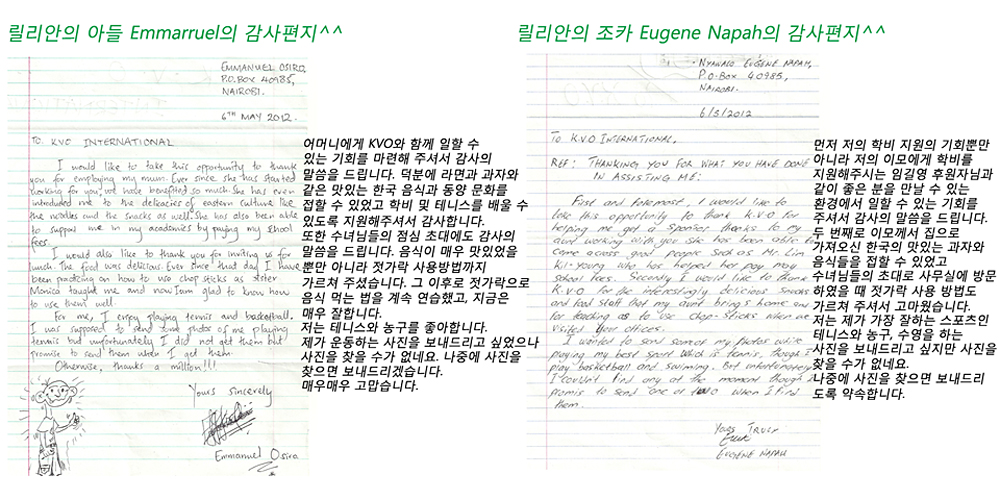 릴리안의 아들 Emmarruel의 감사편지^^
EMMANUEL OSIRO,
P.O.BOX 40985,
NAIROBI.
6TH MAY 2012.
TO. KVO INTERNATIONAL
I would like to take this opportunity to thank
you for employing my mum. Ever since she has started
working for you, we have benefited so much. She has even
introduced me to the delicacies of eastern culture like
the noodles and the snacks as well. She has also been able
to support me in my academics by paying my school
fees.
I would also like to thank you for inviting us for
lunch. The food was delicious. Ever since that day I have
been practicing on how to use chop sticks as sister
Monica taught me and now I am glad to know how
to use them well.
For me, I enjoy playing tennis and basketball.
I was supposed to send some photos of me playing
tennis but unfortunately I did not get them but
promise to send them when I get them.
Otherwise, thanks a million!!!
Yours sincerely
Emmanuel Osiro
어머니에게 KVO와 함께 일할 수
있는 기회를 마련해 주셔서 감사의
말씀을 드립니다. 덕분에 라면과 과자와
같은 맛있는 한국 음식과 동양 문화를
접할 수 있었고 학비 및 테니스를 배울 수
있도록 지원해주셔서 감사합니다.
또한 수녀님들의 점심 초대에도 감사의
말씀을 드립니다. 음식이 매우 맛있었을
뿐만 아니라 젓가락 사용방법까지
가르쳐 주셨습니다. 그 이후로 젓가락으로
음식 먹는 법을 계속 연습했고, 지금은
매우 잘합니다.
저는 테니스와 농구를 좋아합니다.
제가 운동하는 사진을 보내드리고 싶었으나
사진을 찾을 수가 없네요. 나중에 사진을
찾으면 보내드리겠습니다.
매우매우 고맙습니다.
릴리안의 조카 Eugene Napah의 감사편지^^
NYAWALO EUGENE NAPAH,
P.O.BOX 40985,
NAIROBI.
6/5/2012
TO K.V.O INTERNATIONAL.
REF: THANKING YOU FOR WHAT YOU HAVE DONE
IN ASSISTING ME:
First and foremost, I would like to
this opportunity to thank K.V.O for
helping me get a sponsor thanks to my
aunt working with you she has been able to
come across good people such as Mr. Lim
Kil-young who has helped her pay may
school fees. Secondly I would like to thank
K.V.O for the interestingly delicious snacks
and food stuff that my aunt brings home and
for teaching us to use chop-sticks when we
visited your offices.
I wanted to send some of my photos while
playing my best sport which is tennis, though I
play basketball and swimming. But unfortunately
I couldn't find any at the moment though I
promis to send one or two when I find
them.
Yours TRULY
EUGENE NAPAH
먼저 저의 학비 지원의 기회뿐만
아니라 저의 이모에게 학비를
지원해주시는 임길영 후원자님과
같이 좋은 분을 만날 수 있는
환경에서 일할 수 있는 기회를
주셔서 감사의 말씀을 드립니다.
두 번째로 이모께서 집으로
가져오신 한국의 맛있는 과자와
음식들을 접할 수 있었고
수녀님들의 초대로 사무실에 방문
하였을 때 젓가락 사용 방법도
가르쳐 주셔서 고마웠습니다.
저는 제가 가장 잘하는 스포츠인
테니스와 농구, 수영을 하는
사진을 보내드리고 싶지만 사진을
찾을 수가 없네요.
나중에 사진을 찾으면 보내드리
도록 약속합니다.